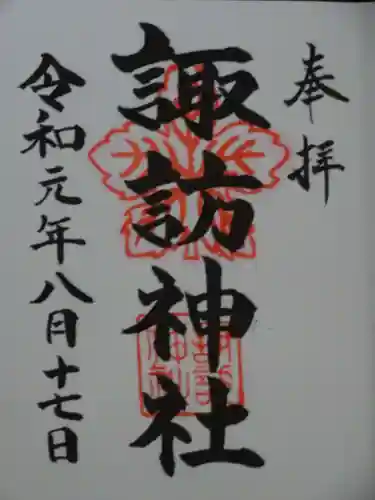 奉拝
諏訪神社
令和元年八月十七日